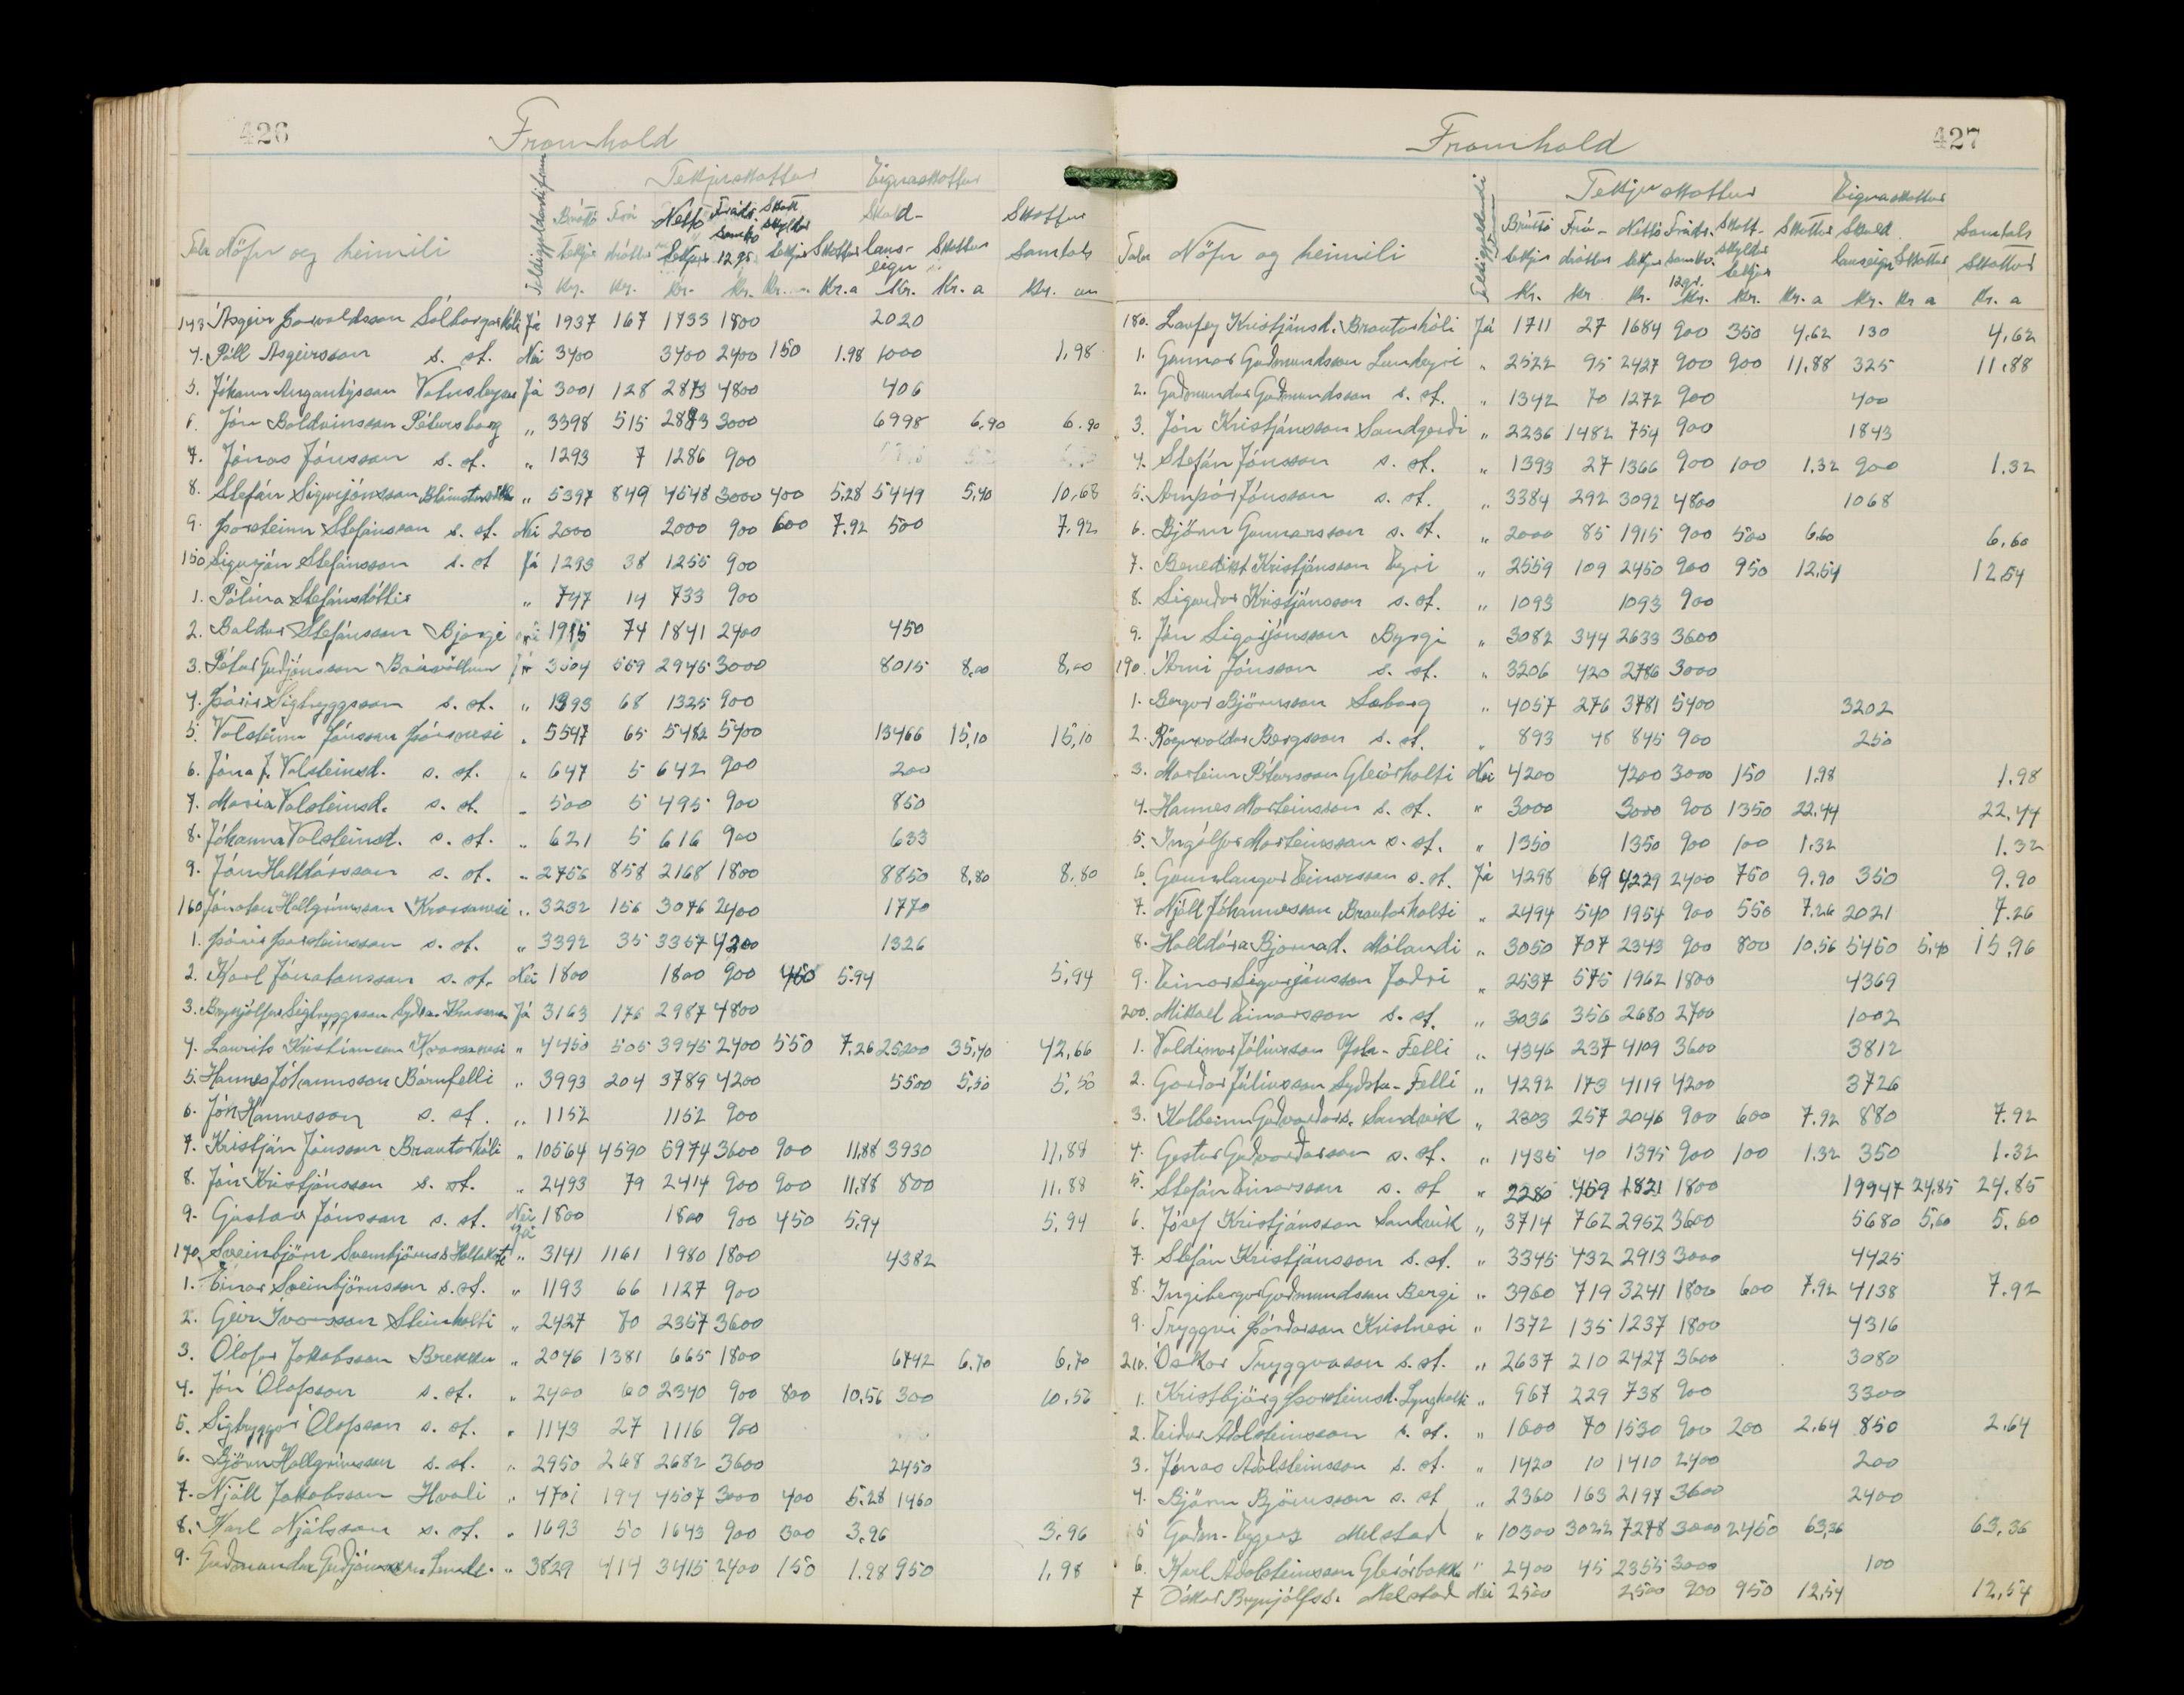 426
Framhald
Tekjuskattur Eignaskattur
Tala Nöfn og heimili Brúttó tekjur Kr. Frá- dráttur Kr. Nettó tekjur Kr. Frádr. samkv. 12 gr. Kr. Skatt skyldar tekjur Kr. Skattur Kr. a Skuld- laus- eign Kr. Skattur Kr. a Skattur samtals Kr. au
143 Ásgeir Þorvaldsson Sólborgarhóli Já 1937 167 1733 1800 2020
4. Páll Ásgeirsson s. st. Nei 3400 3400 2400 150 1.98 1000 1,98
5. Jóhann Angantýsson Já 3001 128 2873 4800 406
6. Jón Baldvinsson Pétursborg „ 3398 515 2883 3000 6998 6,90 6.90
7. Jónas Jónsson s. st. „ 1293 7 1286 900
8. Stefán Sigurjónsson „ 5397 849 4548 3000 400 5,28 5449 5,40 10,68
9. Þorsteinn Stefánsson s. st. Nei 2000 2000 900 600 7.92 500 7,92
150 Sigurjón Stefánsson s. st Já 1293 38 1255 900
1. Pálína Stefánsdóttir „ 747 14 733 900
2. Baldur Stefánsson 1915 74 1841 2400 450
3. Pétur Guðjónsson 3504 559 2945 3000 8015 8,00 8,00
4. Þórir Sigtryggsson s. st. „ 1393 68 1325 900
5. Valsteinn Jónsson Þórsnesi „ 5547 65 5482 5400 13466 15,10 15,10
6. Jóna J. Valsteinsd. s. st. „ 647 5 642 900 200
7. María Valsteinsd. s. st. „ 500 5 495 900 850
8. Jóhanna Valsteinsd. s. st. „ 621 5 616 900 633
9. Jón Halldórsson s. st. „ 2756 858 2168 1800 8850 8,80 8,80
160 Jónatan Hallgrímsson Krossanesi „ 3232 156 3076 2400 1770
1. Þórir Þorsteinsson s. st. „ 3392 35 3357 4200 1326
2. Karl Jónatansson s. st. Nei 1800 1800 900 450 5.94 5,94
3. Brynjólfur Sigtryggsson Já 3163 176 2987 4800
4. Laurits Kristiansen Krossanesi „ 4450 505 3945 2400 550 7,26 25200 35,40 42,66
5. Hannes Jóhannsson Bárufelli „ 3993 204 3789 4200 5500 5,50 5,50
6. Jón Hannesson s. st. „ 1152 1152 900
7. Kristján Jónsson Brautarhóli „ 10564 4590 5974 3600 900 11,88 3930 11,88
8. Jón Kristjánsson s. st. „ 2493 79 2414 900 900 11,88 800 11,88
9. Gústav Jónsson s. st. Nei 1800 1800 900 450 5,94 5,94
170 Sveinbjörn Sveinbjörnss. Hallakoti Já „ 3141 1161 1980 1800 4382
1. Einar Sveinbjörnsson s. st. „ 1193 66 1127 900
2. Geir Ívarsson Steinholti „ 2427 70 2357 3600
3. Ólafur Jakobsson Brekku „ 2046 1381 665 1800 6742 6,70 6,70
4. Jón Ólafsson s. st. „ 2400 60 2340 900 800 10,56 300 10,56
5. Sigtryggur Ólafsson s. st. „ 1143 27 1116 900
6. Björn Hallgrímsson s. st. „ 2950 268 2682 3600 2450
7. Njáll Jakobsson Hvoli „ 4701 194 4507 3000 400 5.28 1460
8. Karl Njálsson s. st. „ 1693 50 1643 900 300 3,96 3,96
9. Guðmundur Guðjónsson „ 3829 414 3415 2400 150 1.98 950 1,98
Framhald
427
Tekjuskattur Eignaskattur
Tala Nöfn og heimili Brúttó tekjur Kr. Frá- dráttur Kr Nettó tekjur Kr. Frádr. samkv. 12 gr. Kr. Skatt- skyldar tekjur Kr. Skattur Kr. a Skuld lauseign Kr. Skattur Kr a Samtals Skattur Kr. a
180. Laufey Kristjánsd. Brautarhóli Já 1711 27 1684 900 350 4,62 130 4,62
1. Gunnar Guðmundsson Lundeyri „ 2522 95 2427 900 900 11,88 325 11,88
2. Guðmundur Guðmundsson s. st. „ 1342 70 1272 900 400
3. Jón Kristjánsson Sandgerði „ 2236 1482 754 900 1843
4. Stefán Jónsson s. st. „ 1393 27 1366 900 100 1.32 900 1.32
5. Arnþór Jónsson s. st. „ 3384 292 3092 4800 1068
6. Björn Gunnarsson s. st. „ 2000 85 1915 900 500 6.60 6,60
7. Benedikt Kristjánsson Eyri „ 2559 109 2450 900 950 12,54 12,54
8. Sigurður Kristjánsson s. st. „ 1093 1093 900
9. Jón Sigurjónsson Byrgi „ 3082 344 2633 3600
190. Árni Jónsson s. st. „ 3206 420 2786 3000
1. Bergur Björnsson Sæborg „ 4057 276 3781 5400 3202
2. Rögnvaldur Bergsson s. st. „ 893 48 845 900 250
3. Marteinn Pétursson Glerárholti Nei 4200 4200 3000 150 1.98 1.98
4. Hannes Marteinsson s. st. „ 3000 3000 900 1350 22.44 22.44
5. Ingólfur Marteinsson s. st. „ 1350 1350 900 100 1.32 1.32
6. Gunnlaugur Einarsson s. st. Já 4298 69 4229 2400 750 9.90 350 9.90
7. Njáll Jóhannesson Brautarholti „ 2494 540 1954 900 550 7.26 2021 7.26
8. Halldóra Bjarnad. Mólandi „ 3050 707 2343 900 800 10.56 5450 5,40 15,96
9. Einar Sigurjónsson Jaðri „ 2537 575 1962 1800 4369
200. Mikael Einarsson s. st. „ 3036 356 2680 2700 1002
1. Valdimar Júlíusson Ysta-Felli „ 4346 237 4109 3600 3812
2. Garðar Júlíusson Syðsta-Felli „ 4292 173 4119 4200 3726
3. Kolbeinn Guðvarðars. Sandvík „ 2303 257 2046 900 600 7.92 880 7.92
4. Gestur Guðvarðarson s. st. „ 1435 40 1395 900 100 1.32 350 1.32
5. Stefán Einarsson s. st „ 2280 459 1821 1800 19947 24,85 24.85
6. Jósef Kristjánsson Sandvík „ 3714 762 2952 3600 5680 5,60 5.60
7. Stefán Kristjánsson s. st. „ 3345 432 2913 3000 4425
8. Ingibergur Guðmundsson Bergi „ 3960 719 3241 1800 600 7.92 4138 7.92
9. Tryggvi Þórðarson Kristnesi „ 1372 135 1237 1800 4316
210. Óskar Tryggvason s. st. „ 2637 210 2427 3600 3080
1. Kristbjörg Þorsteinsd. Lyngholti „ 967 229 738 900 3300
2. Eiður Aðalsteinsson s. st. „ 1600 70 1530 900 200 2.64 850 2.64
3. Jónas Aðalsteinsson s. st. „ 1420 10 1410 2400 200
4. Björn Björnsson s. st „ 2360 163 2197 3600 2400
5 Guðm. Eggerz Melstað „ 10300 3022 7278 3000 2450 63,36 63,36
6. Karl Aðalsteinsson Glerárbakka „ 2400 45 2355 3000 100
7 Óskar Brynjólfss. Melstað Nei 2500 2500 900 950 12,54 12,54